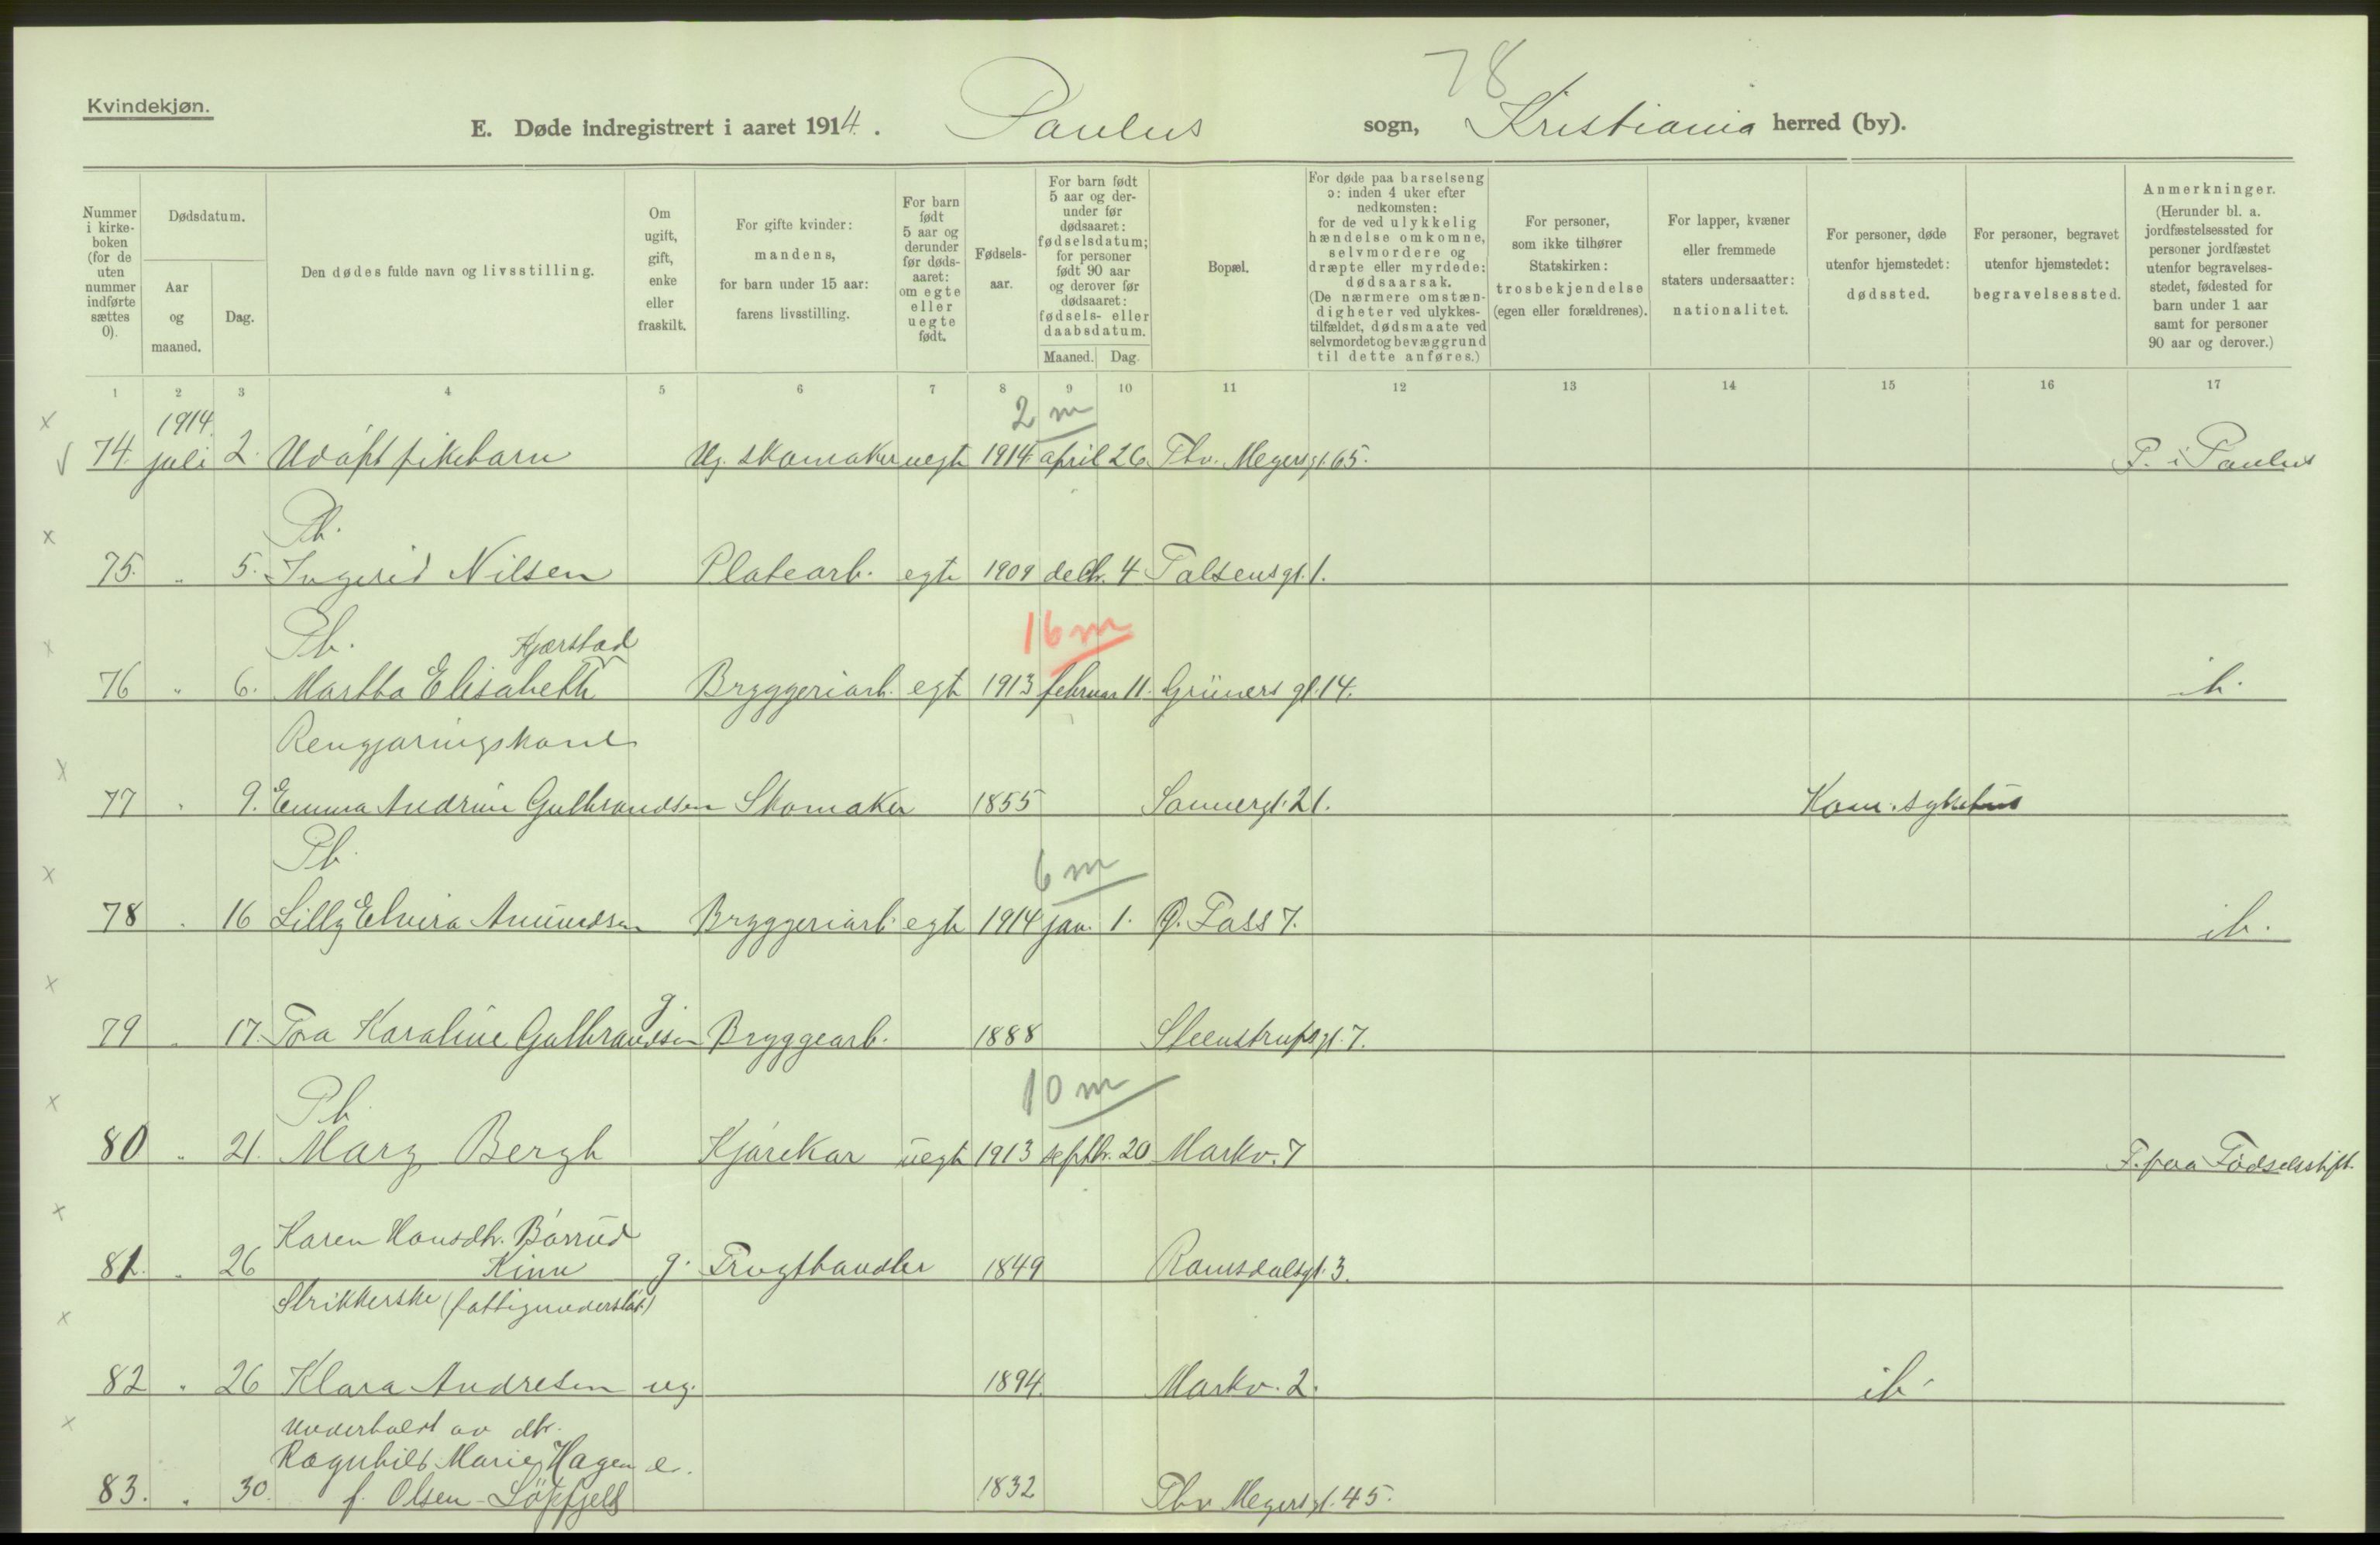 78
Kvindekjøn.
E. Døde indregistrert i aaret 1914. Paulus sogn, Kristiania herred (by).
Nummer i kirkeboken (for de uten nummer indførte sættes 0).
Dødsdatum.
Aar og maaned.
Dag.
Den dødes fulde navn og livsstilling.
Om ugift, gift, enke eller fraskilt.
For gifte kvinder: mandens, for barn under 15 aar: farens livsstilling.
For barn født 5 aar og derunder før dødsaaret: om egte eller uegte født.
Fødselsaar.
For barn født 5 aar og derunder før dødsaaret: fødselsdatum; for personer født 90 aar og derover før dødsaaret: fødsels- eller daabsdatum.
Maaned. Dag.
Bopæl.
For døde paa barselseng ɔ: inden 4 uker efter nedkomsten: for de ved ulykkelig hændelse omkomne, selvmordere og dræpte eller myrdede: dødsaarsak. (De nærmere omstændigheter ved ulykkestilfældet, dødsmaate ved selvmordet og bevæggrund til dette anføres.)
For personer, som ikke tilhører Statskirken: trosbekjendelse (egen eller forældrenes).
For lapper, kvæner eller fremmede staters undersaatter: nationalitet.
For personer, døde utenfor hjemstedet: dødssted.
For personer, begravet utenfor hjemstedet: begravelsessted.
Anmerkninger. (Herunder bl. a. jordfæstelsessted for personer jordfæstet utenfor begravelsesstedet, fødested for barn under 1 aar samt for personer 90 aar og derover.)
1 2 3 4 5 6 7 8 9 10 11 12 13 14 15 16 17
1914. 2 m
74. juli 2. Udøpt pikebarn Ug. skomaker uegte 1914 april 26. Thv. Meyersgt. 65. F. i Paulus
Pb.
75. " 5. Ingerid Nilsen Platearb. egte 1909 decbr. 4 Falsensgt. 1.
Pb. Kjærstad 16 m
76 " 6. Martha Elisabeth Bryggeriarb. egte 1913 februar 11. Grüners gt. 14. ib.
Rengjøringskone
77 " 9. Emma Andrine Gulbrandsen Skomaker 1855 Sannergt. 21. Kom. sykehus
Pb. 6 m
78 " 16 Lilly Elvira Amundsen Bryggeriarb. egte 1914 jan. 1. Ø. Foss 7. ib.
79 " 17. Tora Karoline Gulbrandsen g. Bryggearb. 1888 Steenstrupsgt. 7.
Pb. 10 m
80 " 21. Mary Bergh Kjørekar uegte 1913 septbr. 20 Markv. 7 F. paa Fødselsstift.
Karen Hansdtr. Børrud
81. " 26 Kinn g. Frugthandler 1849 Romsdalsgt. 3.
Strikkerske (fattigunderstøt.)
82 " 26 Klara Andresen ug. 1894 Markv. 2. ib.
Underholdt av dtr.
Ragnhild Marie Hagen e.
83. " 30. f. Olsen-Løkfjeld 1832 Thv Meyersgt. 45.